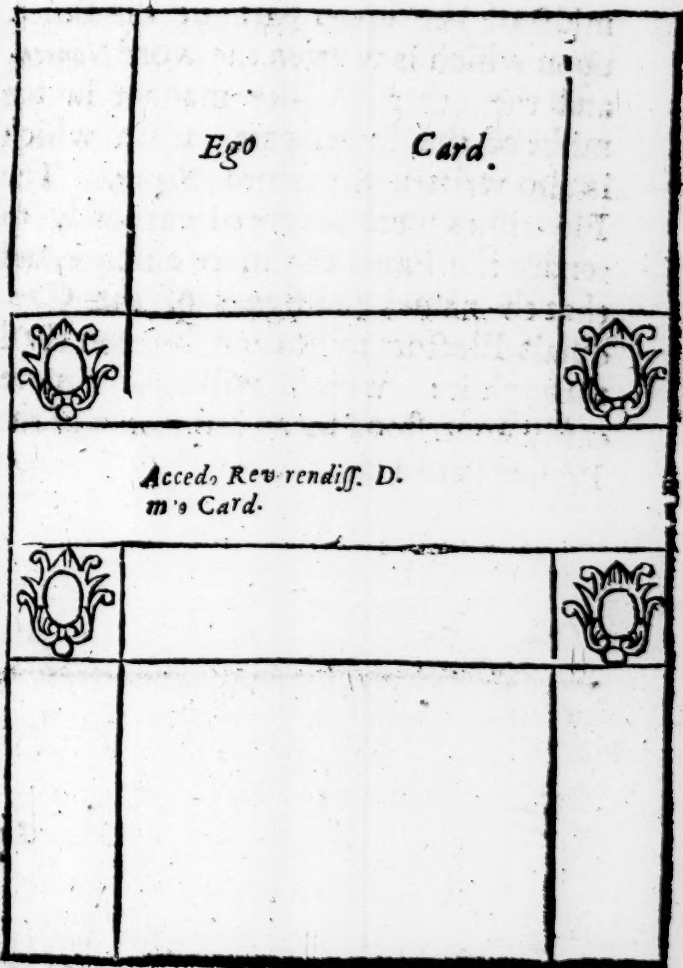 Ego Card.
Accedo Reverendiss. D.
meo Card.